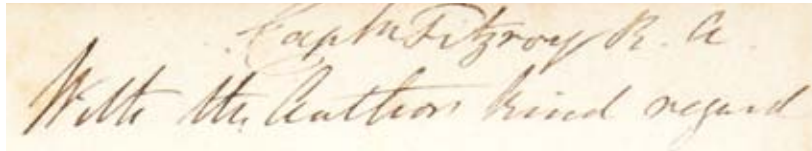 Captn Fitzroy R. A
With the Authors kind regard